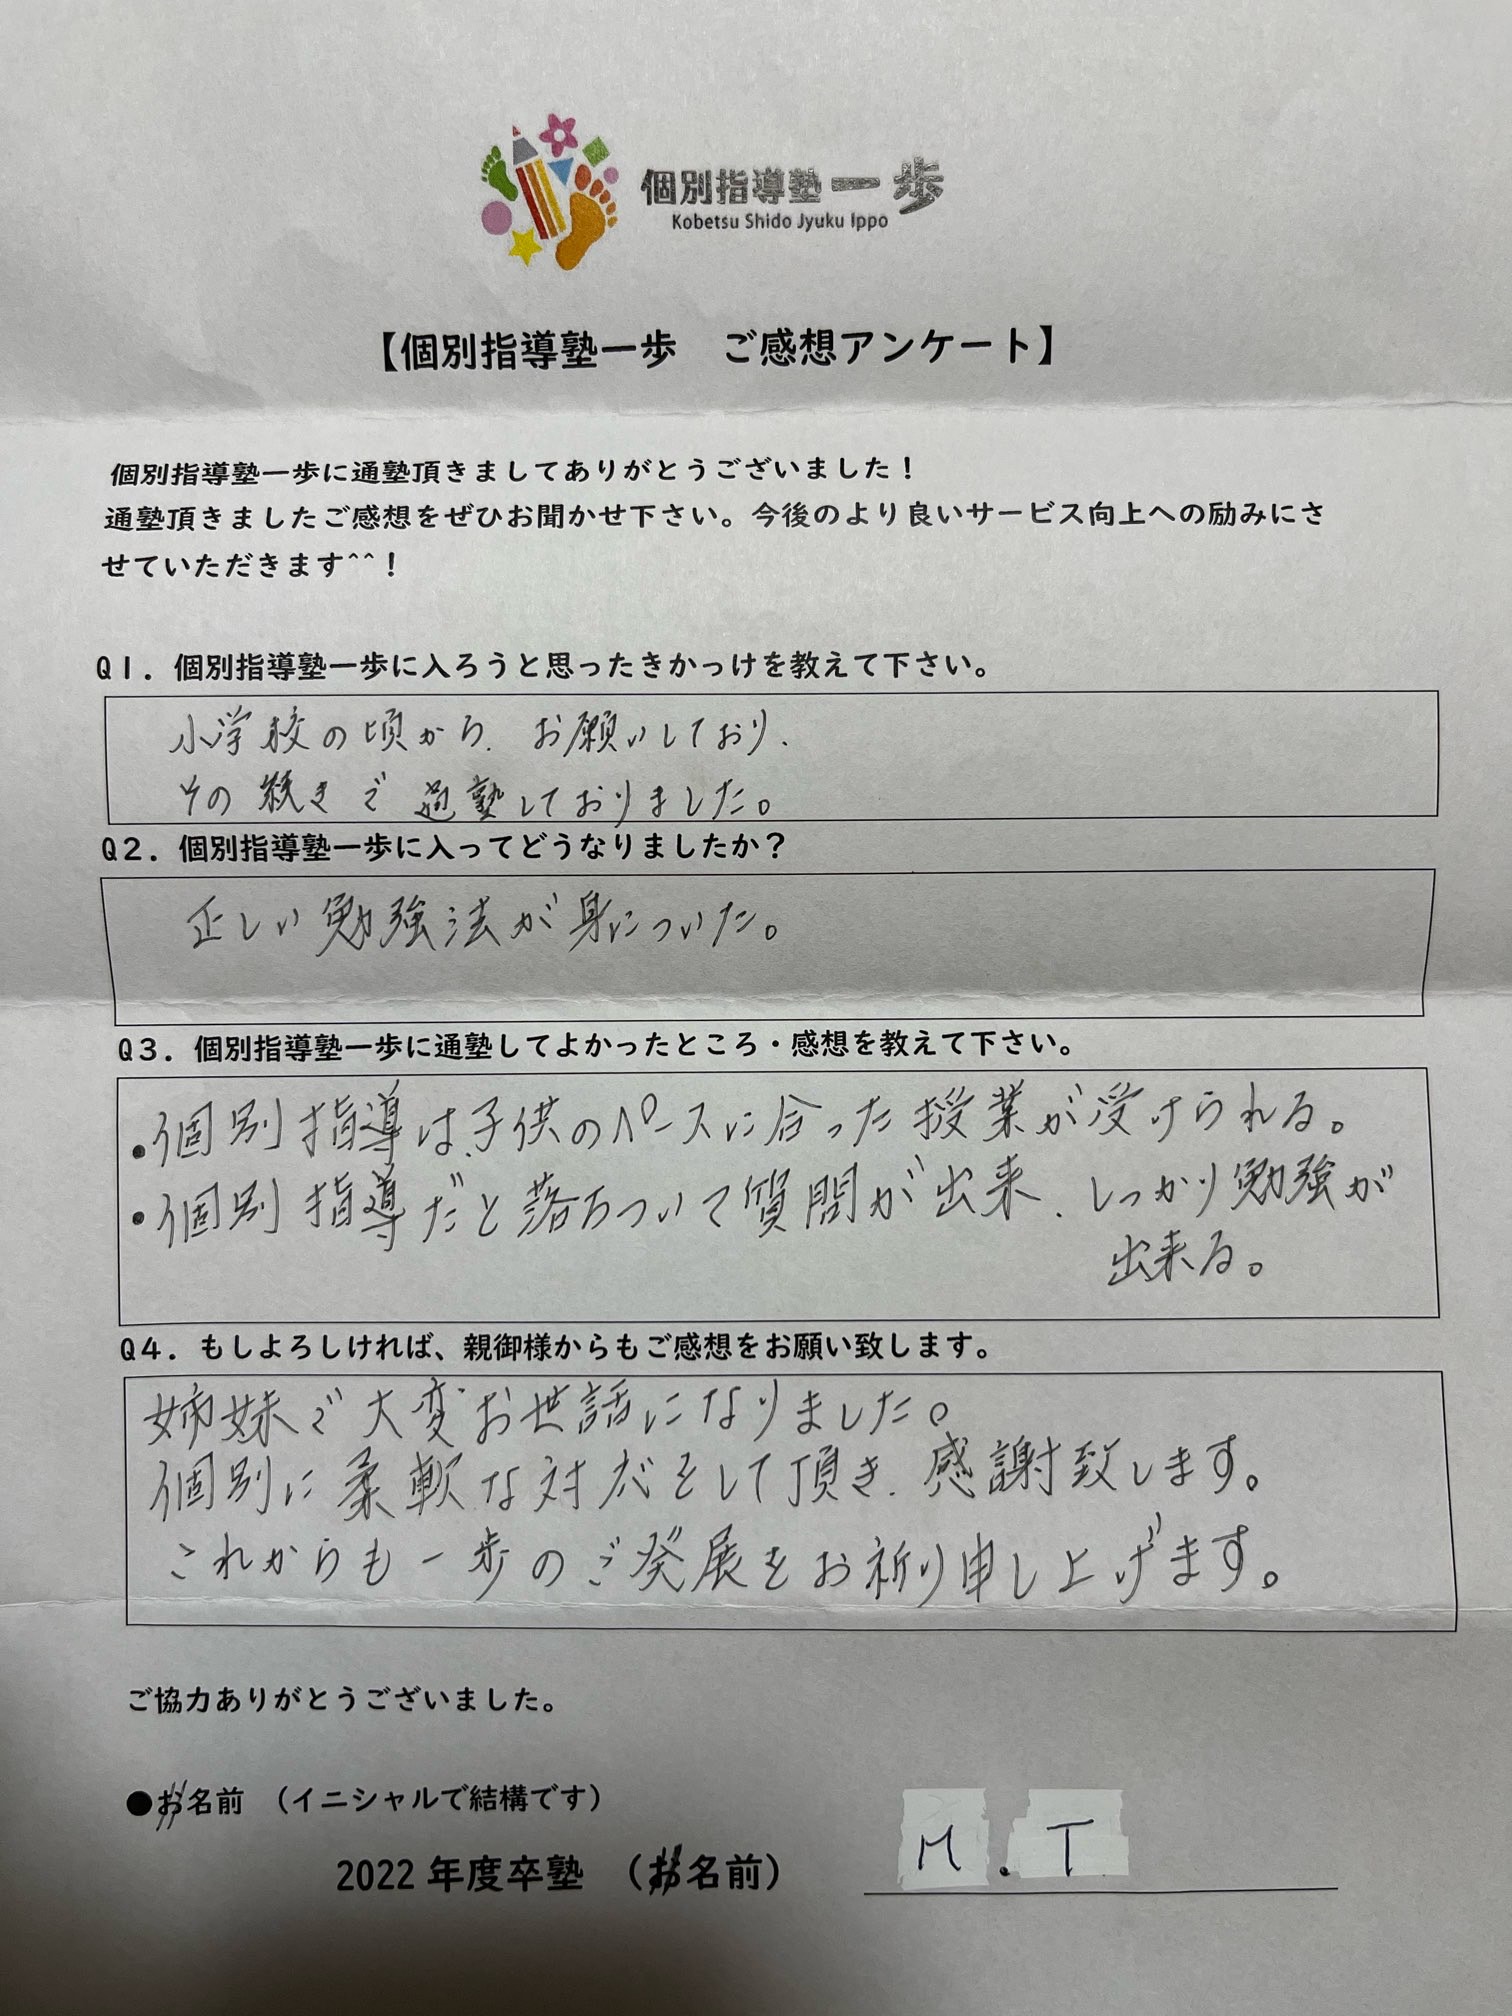 個別指導塾一歩
Kobetsu Shido Jyuku Ippo
【個別指導塾一歩　ご感想アンケート】
個別指導塾一歩に通塾頂きましてありがとうございました！
通塾頂きましたご感想をぜひお聞かせ下さい。今後のより良いサービス向上への励みにさ
せていただきます^^！
Q1．個別指導塾一歩に入ろうと思ったきかっけを教えて下さい。
小学校の頃から、お願いしており、
その続きで通塾しておりました。
Q2．個別指導塾一歩に入ってどうなりましたか？
正しい勉強法が身についた。
Q3．個別指導塾一歩に通塾してよかったところ・感想を教えて下さい。
・個別指導は、子供のペースに合った授業が受けられる。
・個別指導だと落ちついて質問が出来、しっかり勉強が
出来る。
Q4．もしよろしければ、親御様からもご感想をお願い致します。
姉妹で大変お世話になりました。
個別に柔軟な対応をして頂き、感謝致します。
これからも一歩のご発展をお祈り申し上げます。
ご協力ありがとうございました。
●お名前　（イニシャルで結構です）
2022年度卒塾　（お名前）　M.T